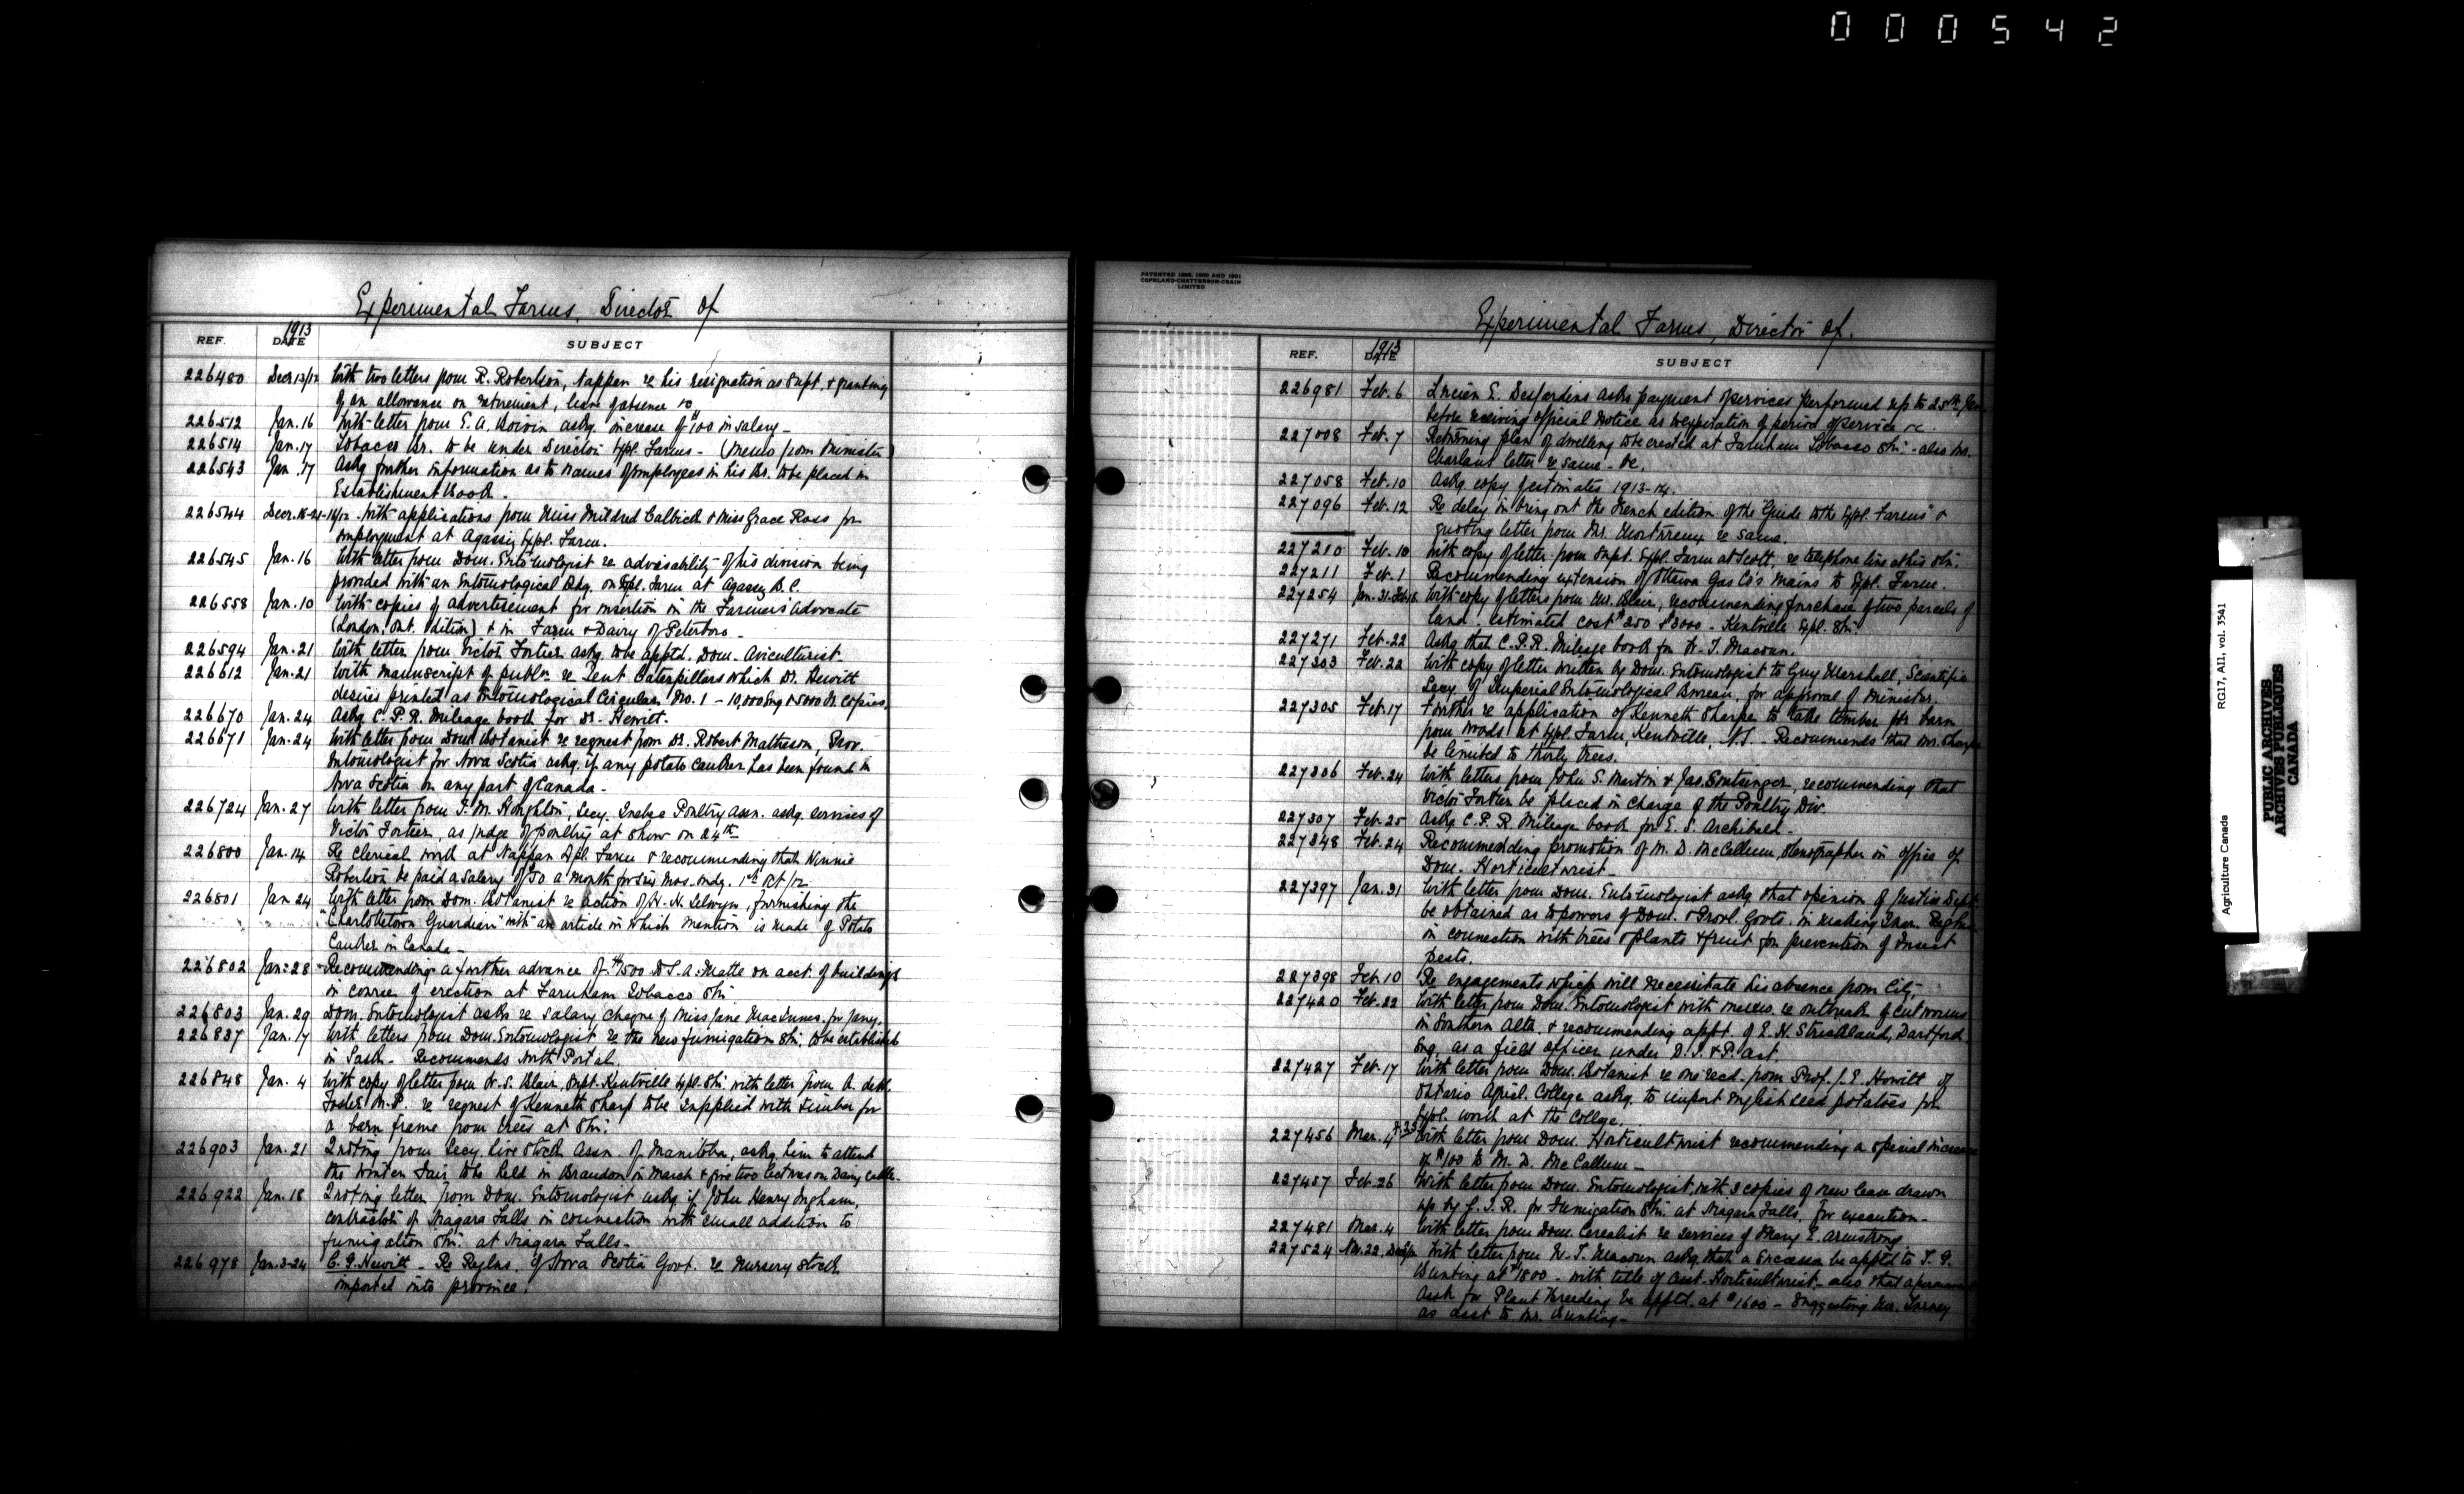 000542
Experimental Farms, Director of
1913
REF. DATE SUBJECT
226480 Decr 13/12 With two letters from R. Robertson, Nappan re his resignation as Supt. & granting
of an allowance on retirement, leave of absence &c
226512 Jan. 16 With letter from E. A. Boivin askg. increase of $100 in salary -
226514 Jan. 17 Tobacco Br. to be under Director Expl. Farms - (Memo from Minister)
226543 Jan. 17 Askg further information as to names of employees in his Br. to be placed in
Establishment Book.
226544 Decr. 18-21-12 With applications from Miss Mildred Calbick & Miss Grace Ross for
employment at Agassiz Expl. Farm.
226545 Jan. 16 With letter from Dom. Entomologist re advisability of his division being
provided with an Entomological Bdg. on Expl. Farm at Agassiz B.C.
226558 Jan. 10 With copies of advertisement for insertion in the Farmers Advocate
(London, Ont. edition) & in Farm & Dairy of Peterboro -
226594 Jan. 21 With letter from Victor Fortier askg. to be apptd. Dom. Aviculturist.
226612 Jan. 21 With manuscript of publn re Tent Caterpillars which Dr. Hewitt
desires printed as Entomological Circular No. 1 - 10,000 Eng & 5000 Fr. Copies.
226670 Jan. 24 Askg C.P.R. Mileage book for Dr. Hewitt.
226671 Jan. 24 With letter from Dom. Botanist re request from Dr. Robert Matheson, Prov.
Entomologist for Nova Scotia askg. if any potato canker has been found in
Nova Scotia or any part of Canada -
226724 Jan. 27 With letter from J. M. Houghton, Secy. Quebec Poultry Assn. askg. services of
Victor Fortier, as judge of poultry at show on 24th
226800 Jan. 14 Re clerical work at Nappan Expl. Farm & recommending that Winnie
Robertson be paid a salary of 30 a month for six mos. endg. 1st Oct/12
226801 Jan 24 With letter from Dom. Botanist re action of W. N. Selwyn, furnishing the
"Charlottetown Guardian" with an article in which mention is made of Potato
Canker in Canada -
226802 Jan: 28 Recommending a further advance of $1500 to S. A. Matte on acct. of buildings
in course of erection at Farnham Tobacco Stn.
226803 Jan. 29 Dom. Entomologist asks re salary cheque of Miss Jane MacInnes for Jany.
226837 Jan. 17 With letters from Dom. Entomologist re the new fumigation Stn. to be established
in Sask - Recommends North Portal.
226848 Jan. 4 With copy of letter from W. S. Blair, Supt. Kentville Expl. Stn. with letter from A. deW.
Foster M.P. re request of Kenneth Sharp to be supplied with timber for
a barn frame from trees at Stn.
226903 Jan. 21 Quoting from Secy. Live Stock Assn. of Manitoba, askg. him to attend
the Winter Fair to be held in Brandon in March & give two lectures on Dairy Cattle.
226922 Jan. 18 Quoting letter from Dom. Entomologist askg if John Henry Ingham,
contractor of Niagara Falls in connection with small addition to
fumigation Stn. at Niagara Falls -
226978 Jan. 3-24 C. G. Hewitt - Re Reglns. of Nova Scotia Govt. re Nursery stock
imported into province.
PATENTED 1899, 1900 AND 1901
COPELAND-CHATTERSON-CRAIN
LIMITED
Experimental Farms, Director of.
1913
REF. DATE SUBJECT
226981 Feb. 6 Lucien E. Desjardins asks payment of services performed up to 25th Jan.
before receiving official notice as to expiration of period of service &c.
227008 Feb. 7 Returning plan of dwelling to be erected at Farnham Tobacco Stn. - also Mr.
Charlan's letter re same - &c.
227058 Feb. 10 Askg copy of estimates 1913-14.
227096 Feb. 12 Re delay in bring out the French edition of the "Guide to the Expl. Farms" &
quoting letter from Mr. re same.
227210 Feb. 10 With copy of letter from Supt. Expl. Farm at Scott, re telephone line at his Stn.
227211 Feb. 1 Recommending extension of Ottawa Gas Co's mains to Expl. Farm.
227254 Jan. 31- With copy of letters from Mr. Blair, recommending purchase of two parcels of
land. estimated cost $250 & $3000 - Kentville Expl. Stn.
227271 Feb. 22 Askg that C.P.R. Mileage book for W. T. Macoun.
227303 Feb. 22 With copy of letter written by Dom. Entomologist to Guy Marshall, Scientific
Secy. of Imperial Entomological Bureau, for approval of Minister.
227305 Feb. 17 Further re application of Kenneth Sharpe to take timber for barn
from woods at Expl. Farm, Kentville, N.S. - Recommends that Mr. Sharpe
be limited to thirty trees.
227306 Feb. 24 With letters from John S. Martin & Jas. recommending that
Victor Fortier be placed in charge of the Poultry Div.
227307 Feb. 25 Askg C.P.R Mileage book for E. S. Archibald -
227348 Feb. 24 Recommending promotion of M. D. McCallum, stenographer in office of
Dom. Horticulturist -
227397 Jan. 31 With letter from Dom. Entomologist askg that opinion of Justice Dept.
be obtained as to powers of Dom. & Provl. Govts. in making Reglns.
in connection with trees & plants & fruit for prevention of Insect
pests.
227398 Feb. 10 Re engagements which will necessitate his absence from City.
227420 Feb. 22 With letter from Dom. Entomologist with memo. re outbreak of cut worms
in Southern Alta. & recommending appt. of E. H. Strickland, Dartford
Eng. as a field officer under D. I. & P. Act.
227427 Feb. 17 With letter from Dom. Botanist re one recd. from Prof. J. E. Howitt of
Ontario Agricl. College askg. to import English seed potatoes for
Expl. work at the College.
227456 Mar. 4 With letter from Dom. Horticulturist recommending a special increase
of $100 to M. D. McCallum -
227457 Feb. 26 With letter from Dom. Entomologist, with 3 copies of new lease drawn
up by G.T.R. for Fumigation Stn. at Niagara Falls, for execution -
227481 Mar. 4 With letter from Dom. Cerealist re services of Mary E. Armstrong.
227524 Nov. 22, With letter from W. T. Macoun askg. that a successor be apptd to T. G.
Bunting at $1800 - with title of Asst. Horticulturist - also that a permanent
Asst. for Plant Breeding be apptd. at $1600 - Suggesting Mr.
as asst to Mr. Bunting -
Agriculture Canada RG17, AII, vol. 3541
PUBLIC ARCHIVES
ARCHIVES PUBLIQUES
CANADA